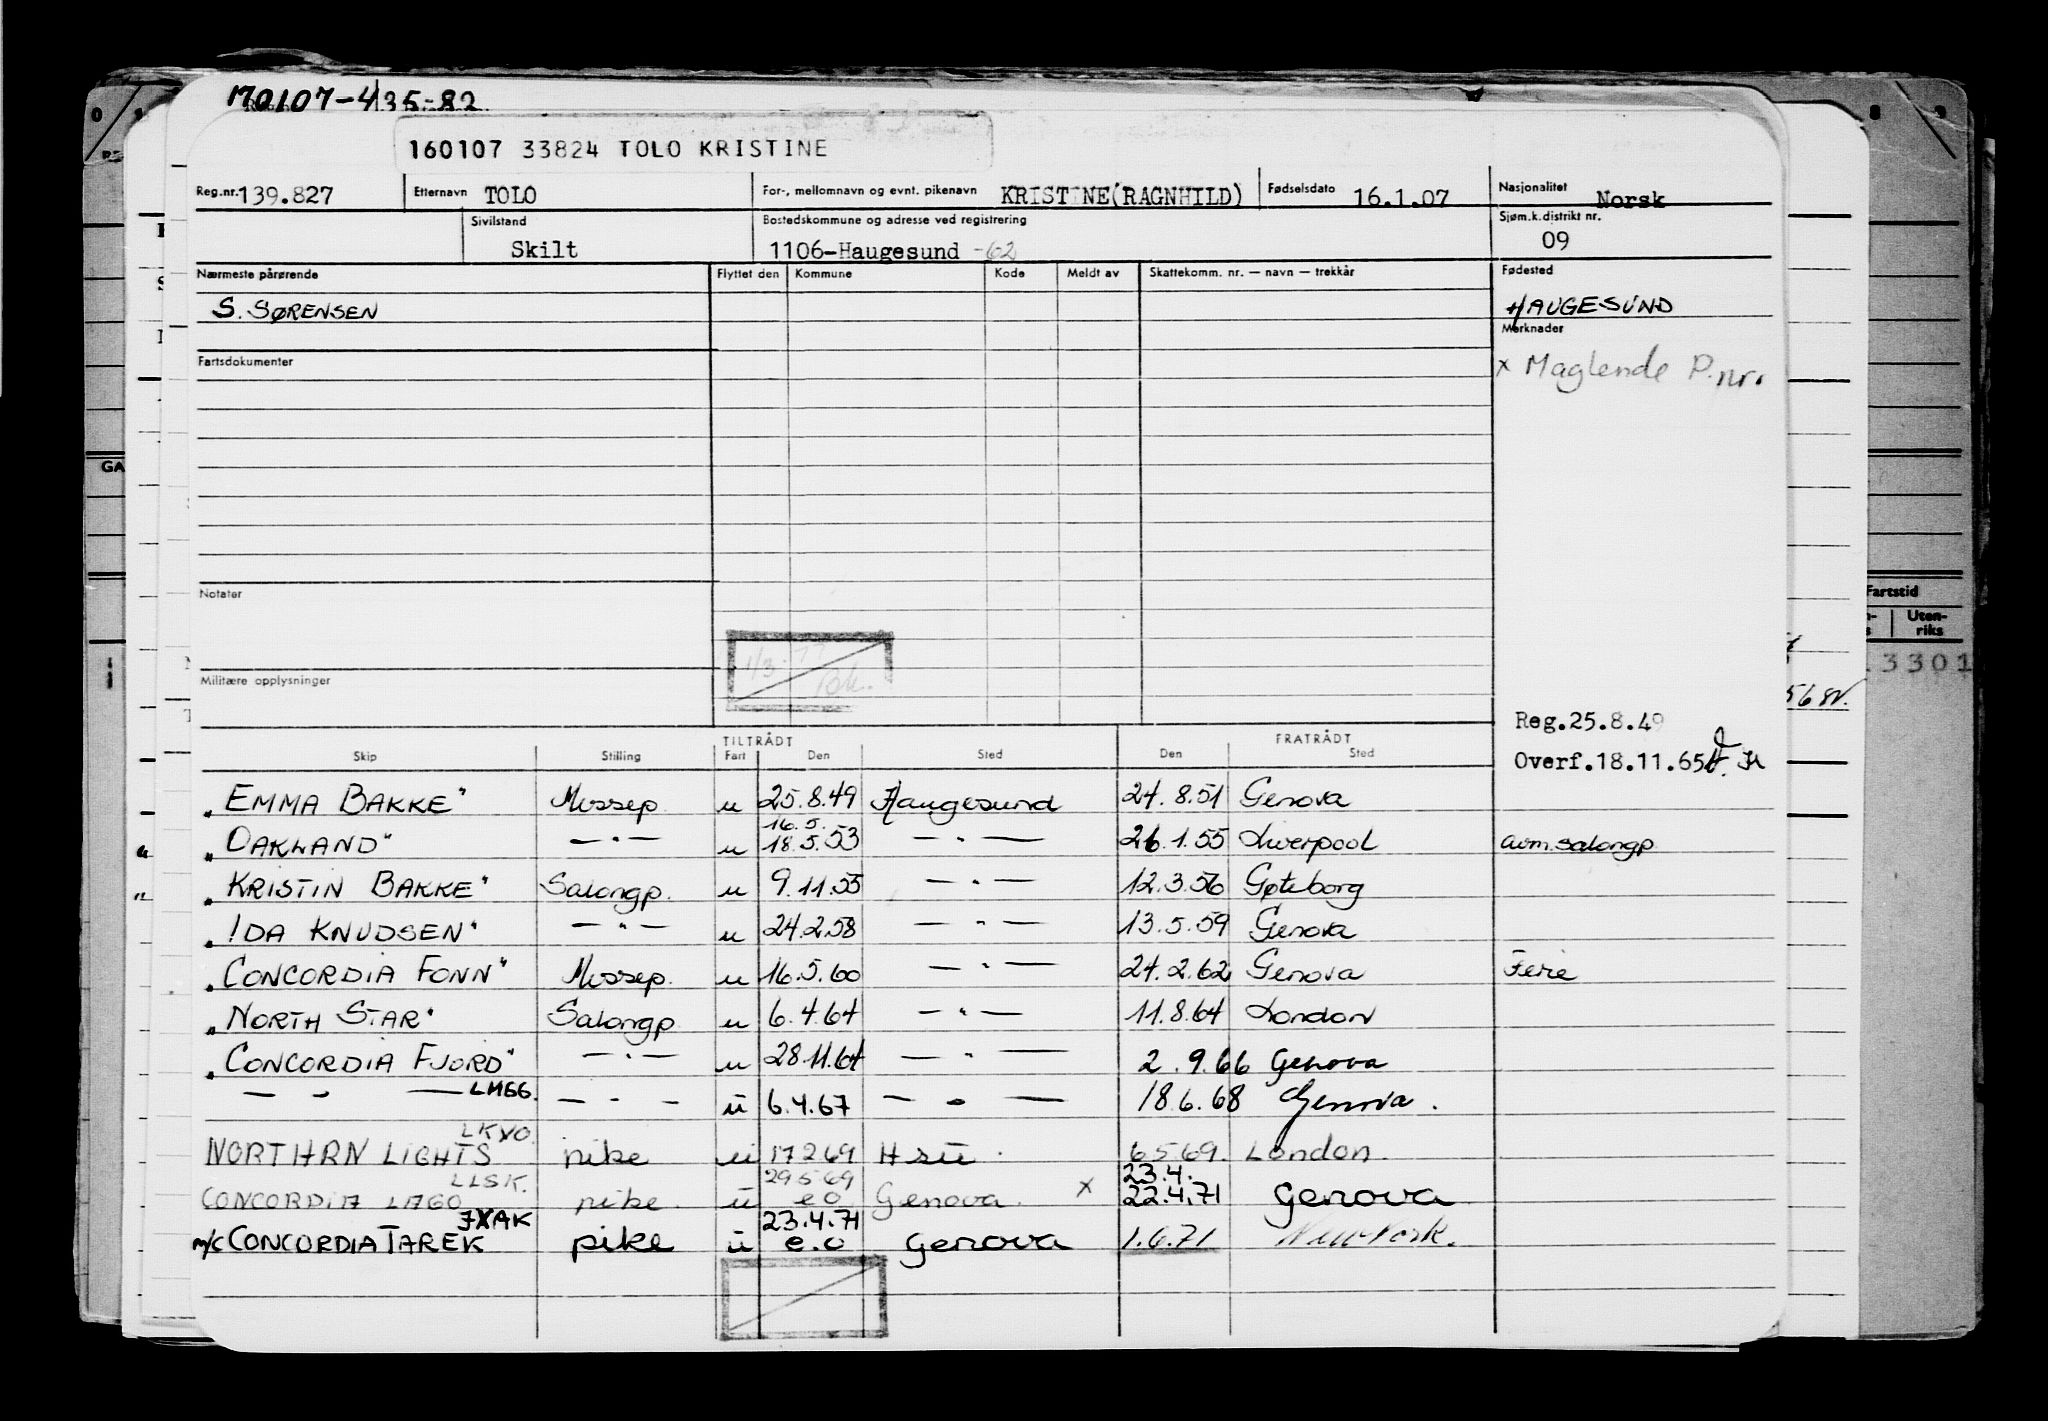 170107-435-82
160107 33824 TOLO KRISTINE
Reg.nr. 139.827 Etternavn TOLO For-, mellomnavn og evnt. pikenavn KRISTINE(RAGNHILD) Fødselsdato 16.1.07 Nasjonalitet Norsk
Sivilstand Skilt Bostedskommune og adresse ved registrering 1106-Haugesund -62 Sjøm.k.distrikt nr. 09
Nærmeste pårørende Flyttet den Kommune Kode Meldt av Skattekomm. nr. — navn — trekkår Fødested
S. SØRENSEN HAUGESUND
Merknader
Fartsdokumenter x Maglende P.nr.
Notater
1/3-77
Militære opplysninger
Reg.25.8.49
Overf.18.11.65
TILTRÅDT FRATRÅDT
Skip Stilling Fart Den Sted Den Sted
"EMMA BAKKE" Messep. u 25.8.49 Haugesund 24.8.51 Genova
16.5.
"OAKLAND" — " — u 18.5.53 — " — 26.1.55 Liverpool avm.salongp
"KRISTIN BAKKE" Salongp. u 9.11.55 — " — 12.3.56 Gøteborg
"IDA KNUDSEN" — " — u 24.2.58 — " — 13.5.59 Genova
"CONCORDIA FONN" Messep. u 16.5.60 — " — 24.2.62 Genova Ferie
"NORTH STAR" Salongp u 6.4.64 — " — 11.8.64 London
"CONCORDIA FJORD" — " — u 28.11.64 — " — 2.9.66 Genova
— " — LMGG. — " — u 6.4.67 — " — 18.6.68 Genova.
LKVO.
NORTHRN LIGHTS pike u 17 2 69 Hsu. 6 5 69. London.
LLSK. 29 5 69 23.4.
CONCORDIA LAGO pike. u e o Genova. x 22.4.71 Genova
JXAK 23.4.71
m/s CONCORDIA TAREK pike u e.o Genova 1.6.71 New York.
GA
Fartstid
Uten-
riks
3301